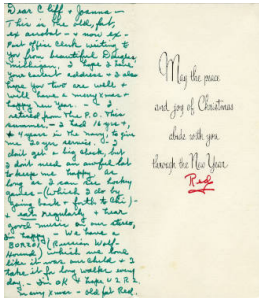 Dear Cliff & Joanna —
This is the old, fat,
ex acrobat - & now ex-
Post office clerk writing to
you from beautiful Douglas,
Michigan. I hope I have
your latest address & I also
hope you two are well &
will have a merry xmas &
happy new year. I
retired from the P.O. This
summer - I had 16 yrs +
4 years in the navy to give
me 20 yrs service. I
don't get a big check, but
I don't need an awful lot
to keep me happy. As
long as I can see hockey
games (which I do by
going back & forth to Chi) -
& eat regularly & hear
good music on our stereo,
I'm happy - We have a
BORZOI (Russian Wolf
Hound) which we love
like it was our child & I
take it for long walks every
day. - I'm OK & hope U 2 R 2
Merry Xmas - old fat Red.
May the peace
and joy of Christmas
abide with you
through the New Year
Red